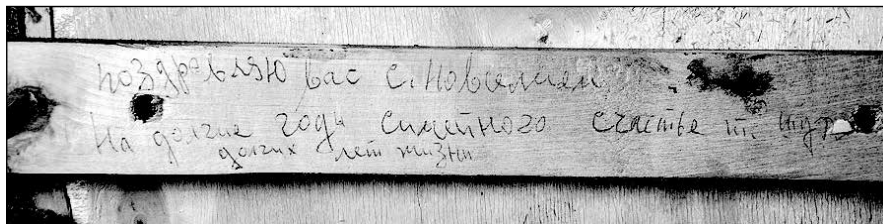 поздравляю вас с новселием
На долгие годы симейного счастье
долгих лет жизни